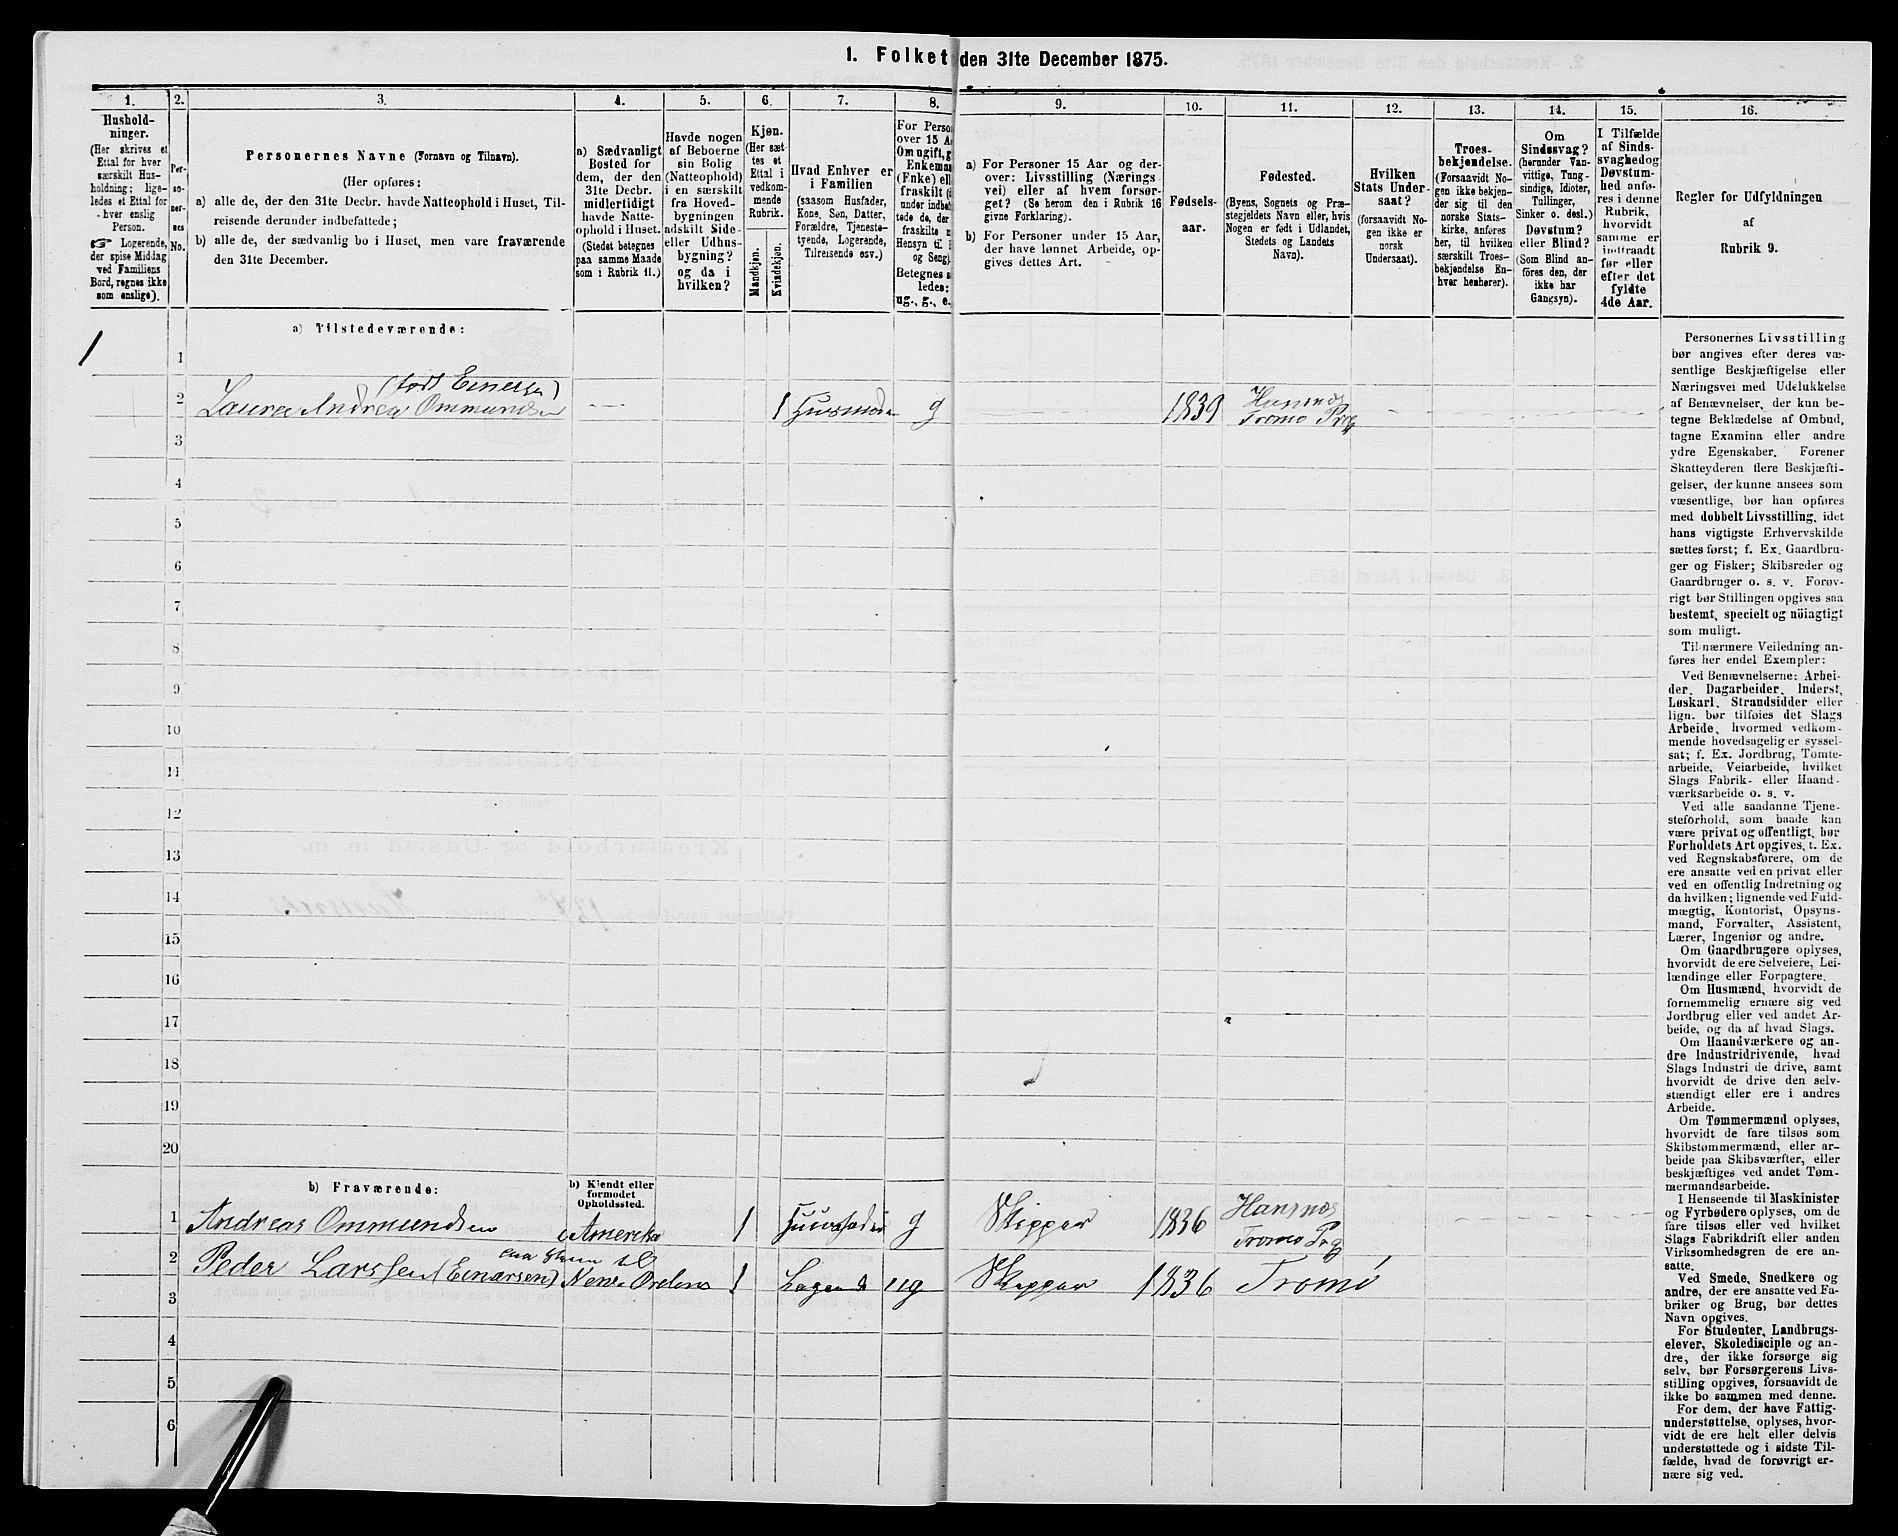 1. Folket den 31te December 1875.
1.
Hushold-
ninger.
(Her skrives et
Ettal for hver
særskilt Hus-
holdning; lige-
ledes et Ettal for
hver enslig
Person.
☞ Logerende,
der spise Middag
ved Familiens
Bord, regnes ikke
som enslige).
2.
Per-
so-
ner-
nes
No.
3.
Personernes Navne (Fornavn og Tilnavn).
(Her opføres:
a) alle de, der den 31te Decbr. havde Natteophold i Huset, Til-
reisende derunder indbefattede;
b) alle de, der sædvanlig bo i Huset, men vare fraværende
den 31te December.
4.
a) Sædvanligt
Bosted for
dem, der den
31te Decbr.
midlertidigt
havde Natte-
ophold i Huset.
(Stedet betegnes
paa samme Maade
som i Rubrik 11.)
5.
Havde nogen
af Beboerne
sin Bolig
(Natteophold)
i en særskilt
fra Hoved-
bygningen
adskilt Side-
eller Udhus-
bygning?
og da i
hvilken?
6.
Kjøn.
(Her sæt-
tes et
Ettal i
vedkom-
mende
Rubrik.
Mandkjøn.
Kvindekjøn.
7.
Hvad Enhver er
i Familien
(saasom Husfader,
Kone, Søn, Datter,
Forældre, Tjeneste-
tyende, Logerende,
Tilreisende osv.)
8.
For Perso
over 15 A
Om ugift, g
Enkeman
(Enke) ell
fraskilt (
under indbe
tede de, der
fraskilte
Hensyn til
og Seng).
Betegnes s
ledes:
ug., g., e.
9.
a) For Personer 15 Aar og der-
over: Livsstilling (Nærings-
vei) eller af hvem forsør-
get? (Se herom den i Rubrik 16
givne Forklaring).
b) For Personer under 15 Aar,
der have lønnet Arbeide, op-
gives dettes Art.
10.
Fødsels-
aar.
11.
Fødested.
(Byens, Sognets og Præ-
stegjeldets Navn eller, hvis
Nogen er født i Udlandet,
Stedets og Landets
Navn).
12.
Hvilken
Stats Under-
saat?
(forsaavidt No-
gen ikke er
norsk
Undersaat).
13.
Troes-
bekjendelse.
(Forsaavidt No-
gen ikke bekjen-
der sig til den
norske Stats-
kirke, anføres
her, til hvilken
særskilt Troes-
bekjendelse En-
hver henhører).
14.
Om
Sindssvag?
(herunder Van-
vittige, Tung-
sindige, Idioter,
Tullinger,
Sinker o. desl.)
Døvstum?
eller Blind?
(Som Blind an-
føres den, der
ikke har
Gangsyn).
15.
I Tilfælde
af Sinds-
svaghed og
Døvstum-
hed anfø-
res i denne
Rubrik,
hvorvidt
samme er
indtraadt
før eller
efter det
fyldte
4de Aar.
16.
Regler for Udfyldningen
af
Rubrik 9.
a) Tilstedeværende:
1
1
(født Einersen)
2 Laura Andrea Ommundsen 1 Husmoder g 1839 Hansnæs
Tromø Prg
3
4
5
6
7
8
9
10
11
12
13
14
15
16
17
18
19
20
b) Fraværende:
b) Kjendt eller
formodet
Opholdssted.
1 Andreas Ommundsen Amerika 1 Huusfader g Skipper 1836 Hansnæs
Tromø Prg
2 Peder Larssen (Einarsen) New Orelens 1 Logerende ug Skipper 1836 Tromø
3
4
5
6
Personernes Livsstilling
bør angives efter deres væ-
sentlige Beskjæftigelse eller
Næringsvei med Udelukkelse
af Benævnelser, der kun be-
tegne Beklædelse af Ombud,
tagne Examina eller andre
ydre Egenskaber. Forener
Skatteyderen flere Beskjæfti-
gelser, der kunne ansees som
væsentlige, bør han opføres
med dobbelt Livsstilling, idet
hans vigtigste Erhvervskilde
sættes først; f. Ex. Gaardbru-
ger og Fisker; Skibsreder og
Gaardbruger o. s. v. Forøv-
rigt bør Stillingen opgives saa
bestemt, specielt og nöiagtigt
som muligt.
Til nærmere Veiledning an-
føres her endel Exempler:
Ved Benævnelserne: Arbei-
der, Dagarbeider, Inderst,
Løskarl, Strandsidder eller
lign. bør tilføies det Slags
Arbeide, hvormed vedkom-
mende hovedsagelig er syssel-
sat; f. Ex. Jordbrug, Tomte-
arbeide, Veiarbeide, hvilket
Slags Fabrik- eller Haand-
værksarbeide o. s. v.
Ved alle saadanne Tjene-
steforhold, som baade kan
være privat og offentligt, bør
Forholdets Art opgives, t. Ex.
ved Regnskabsførere, om de
ere ansatte ved en privat eller
ved en offentlig Indretning og
da hvilken; lignende ved Fuld-
mægtig, Kontorist, Opsyns-
mand, Forvalter, Assistent,
Lærer, Ingeniør og andre.
Om Gaardbrugere oplyses,
hvorvidt de ere Selveiere, Lei-
lændinge eller Forpagtere.
Om Husmænd, hvorvidt de
fornemmelig ernære sig ved
Jordbrug eller ved andet Ar-
beide, og da af hvad Slags.
Om Haandværkere og an-
dre Industridrivende, hvad
Slags Industri de drive, samt
hvorvidt de drive den selv-
stændigt eller ere i andres
Arbeide.
Om Tømmermænd oplyses,
hvorvidt de fare tilsøs som
Skibstømmermænd, eller ar-
beide paa Skibsværfter, eller
beskjæftiges ved andet Tøm-
mermandsarbeide.
I Henseende til Maskinister
og Fyrbødere oplyses, om de
fare tilsøs eller ved hvilket
Slags Fabrikdrift eller anden
Virksomhedsgren de ere an-
satte.
Ved Smede, Snedkere og
andre, der ere ansatte ved Fa-
briker og Brug, bør dettes
Navn opgives.
For Studenter, Landbrugs-
elever, Skoledisciple og an-
dre, der ikke forsørge sig
selv, bør Forsørgerens Livs-
stilling opgives, forsaavidt de
ikke bo sammen med denne.
For dem, der have Fattig-
understøttelse, oplyses, hvor-
vidt de ere helt eller delvis
understøttede og i sidste Til-
fælde, hvad de forøvrigt er-
nære sig ved.